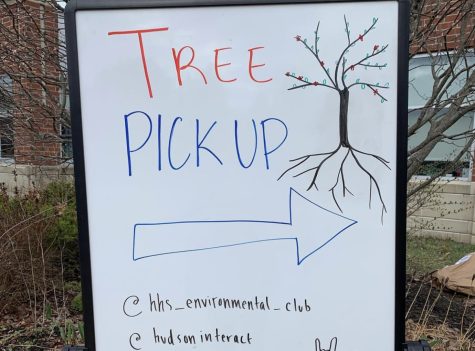 TREE
PICK UP
@hhs_environmental_club
@hudsoninteract